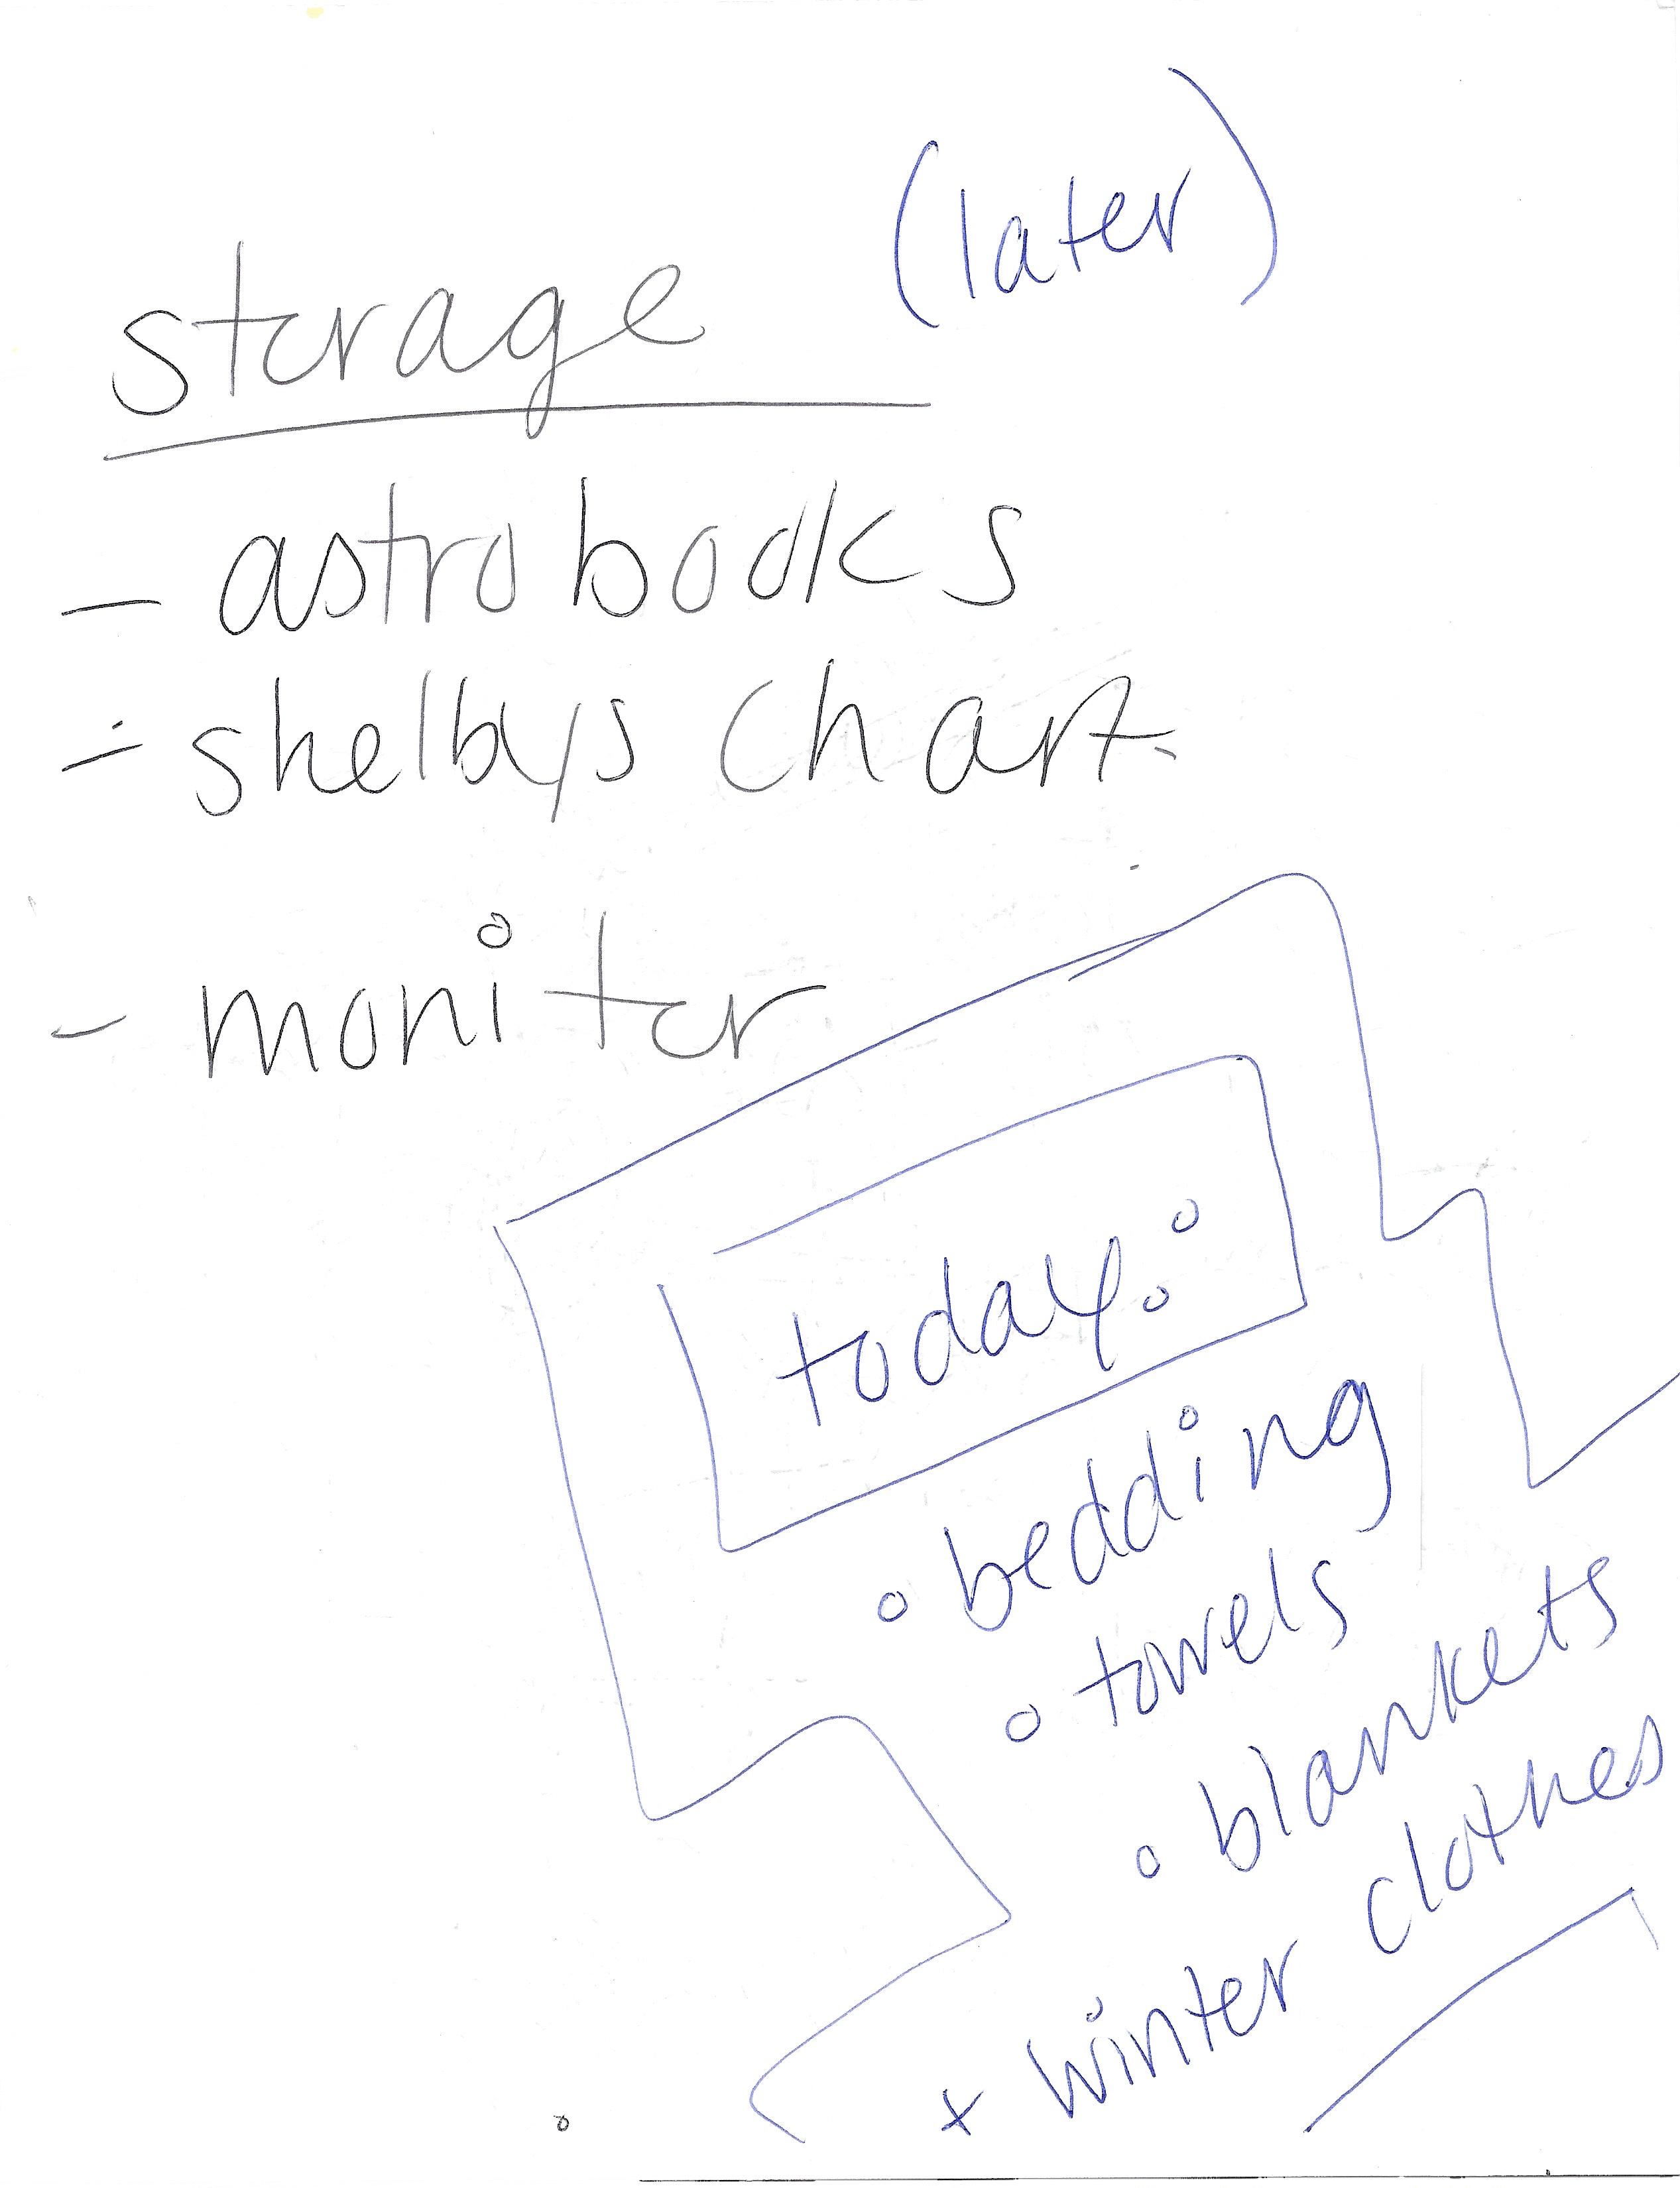 storage (later)
- astro books
- shelbys chart
- monitor
today:
◦ bedding
◦ towels
◦ blankets
+ winter clothes